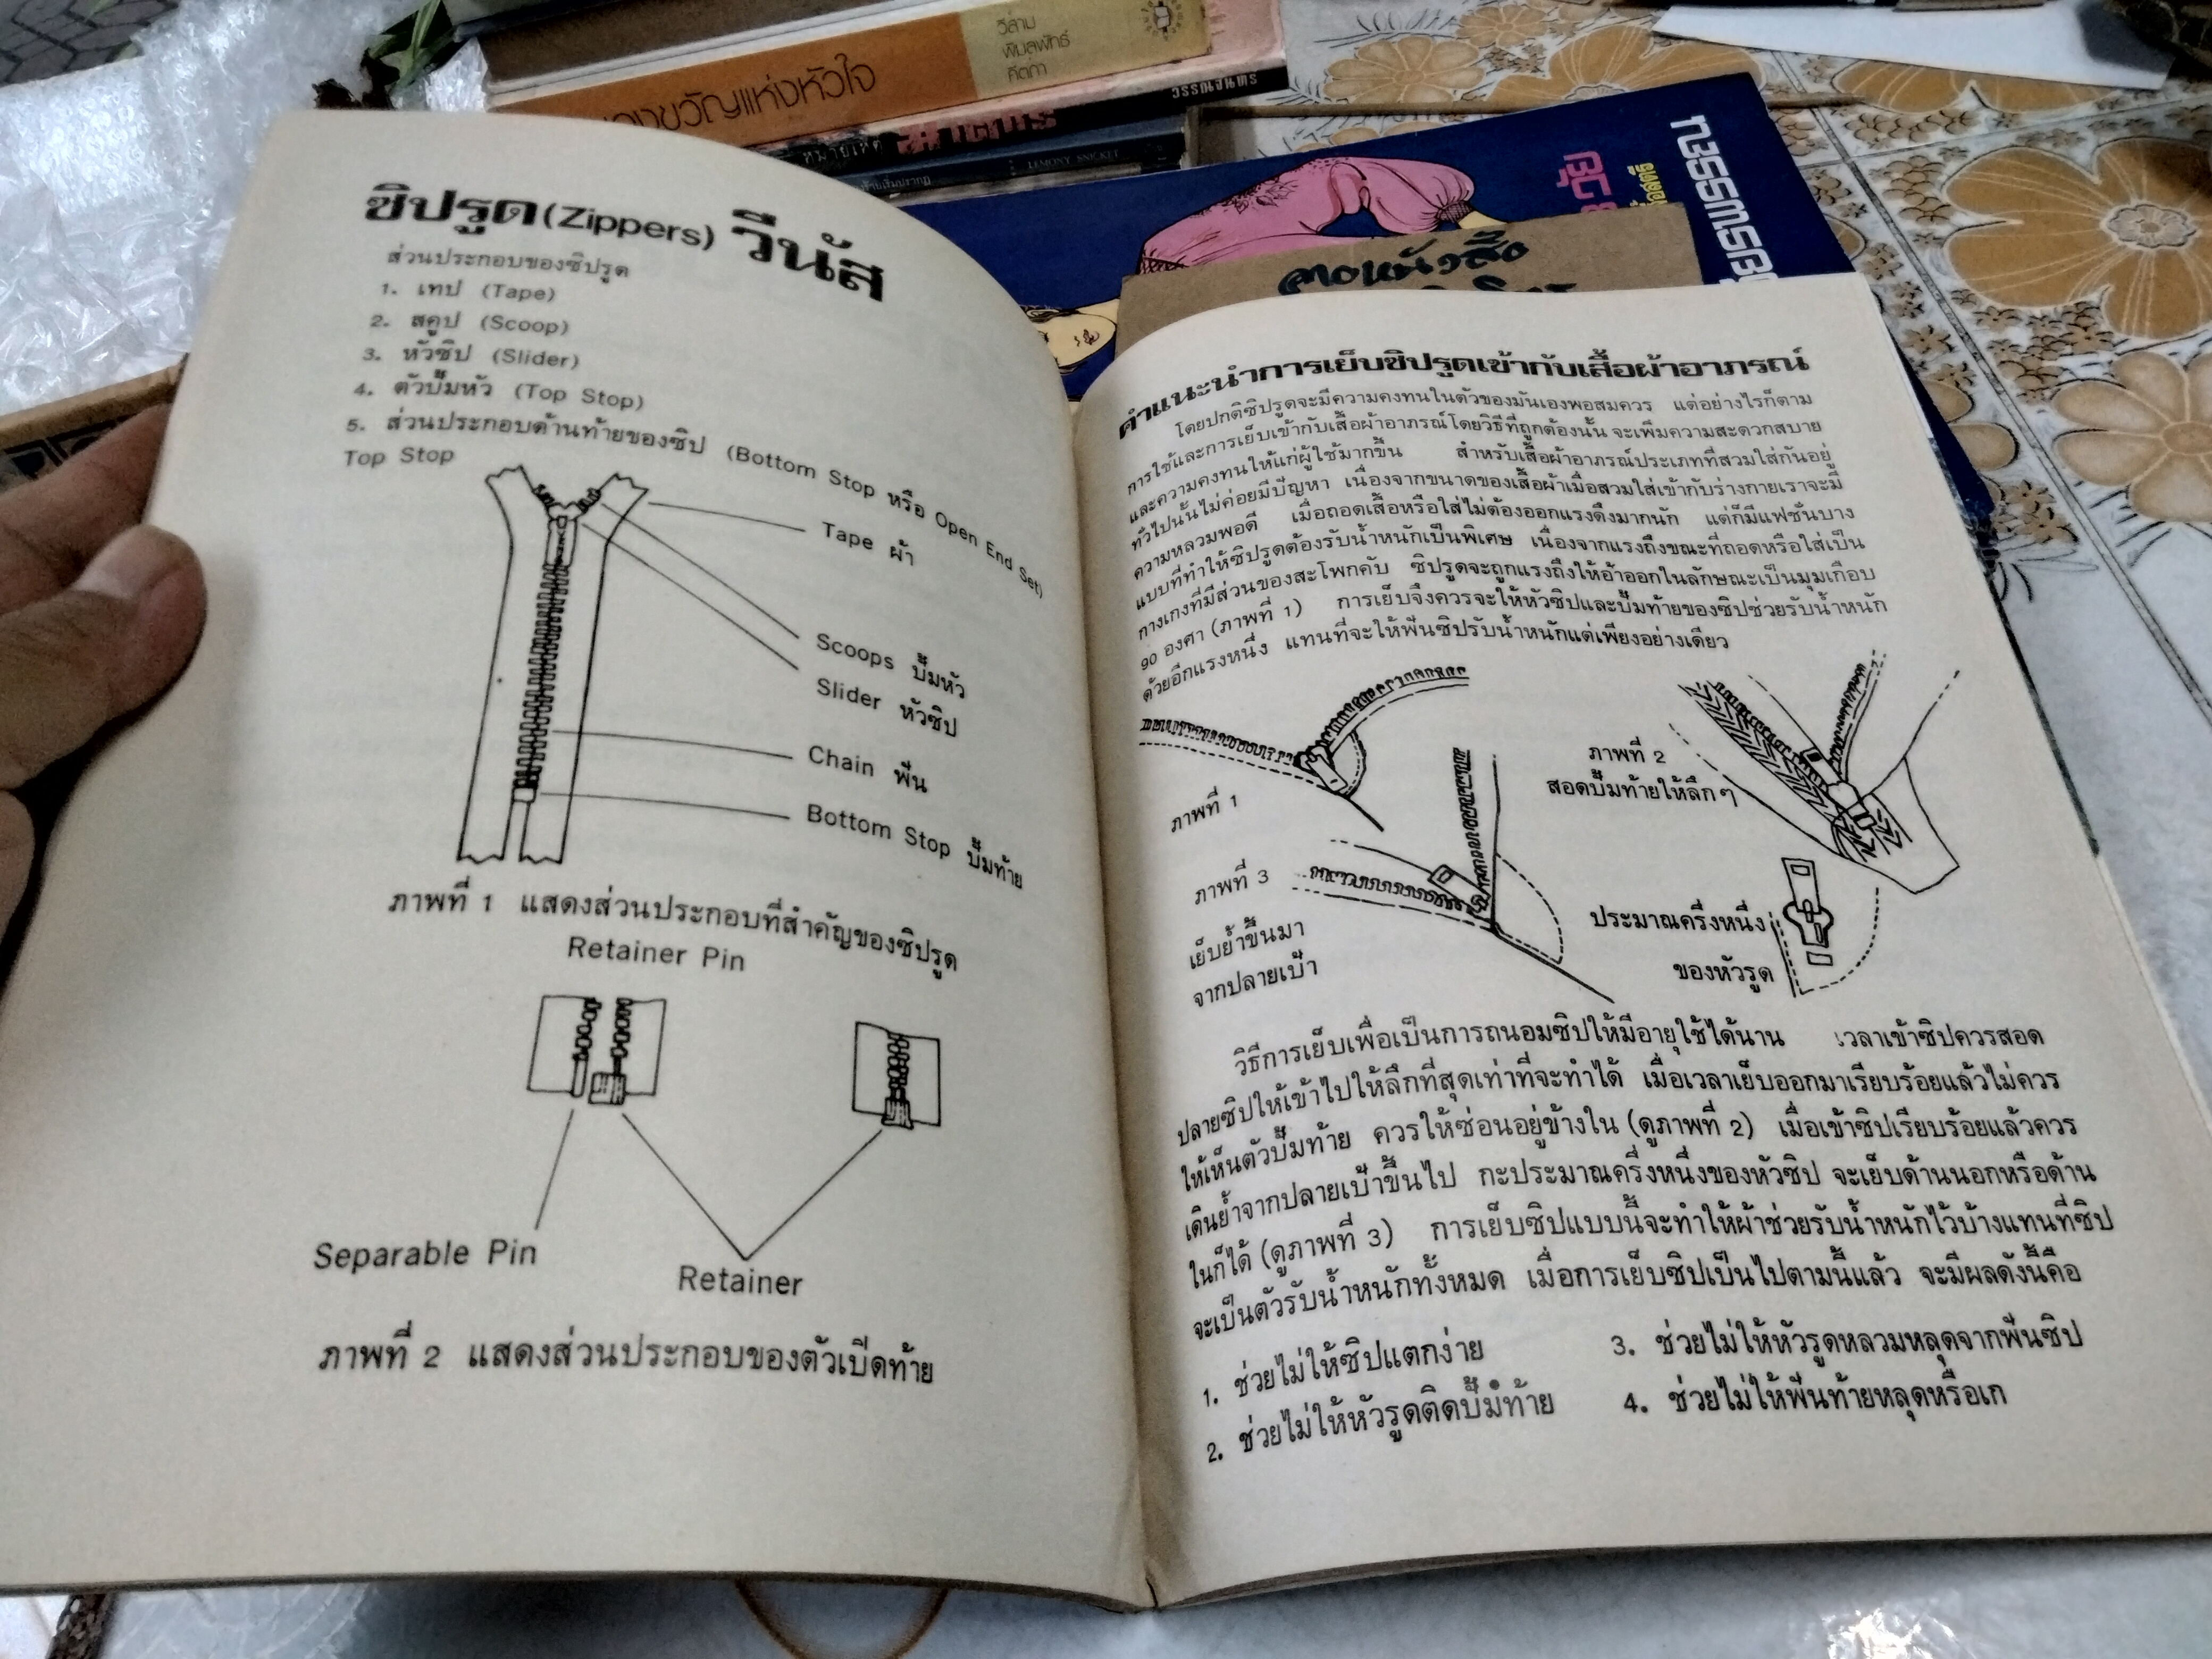 วิลาม
พิมลพักร์
กีตกา
ขวัญแห่งหัวใจ
วรรณจันทร
หมายเหตุ
LEMONY SNICKET
วัย
ซิปรูด (Zippers) วีนัส
ส่วนประกอบของซิปรูด
1. เทป (Tape)
2. สคูป (Scoop)
3. หัวซิป (Slider)
4. ตัวปั๊มหัว (Top Stop)
5. ส่วนประกอบด้านท้ายของซิป (Bottom Stop หรือ Open End Set)
Top Stop
Tape ผ้า
Scoops ปั๊มหัว
Slider หัวซิป
Chain ฟัน
Bottom Stop ปั๊มท้าย
ภาพที่ 1 แสดงส่วนประกอบที่สำคัญของซิปรูด
Retainer Pin
Separable Pin
Retainer
ภาพที่ 2 แสดงส่วนประกอบของตัวเปิดท้าย
คำแนะนำการเย็บซิปรูดเข้ากับเสื้อผ้าอาภรณ์
โดยปกติซิปรูดจะมีความคงทนในตัวของมันเองพอสมควร แต่อย่างไรก็ตาม
การใช้และการเย็บเข้ากับเสื้อผ้าอาภรณ์โดยวิธีที่ถูกต้องนั้น จะเพิ่มความสะดวกสบาย
และความคงทนให้แก่ผู้ใช้มากขึ้น สำหรับเสื้อผ้าอาภรณ์ประเภทที่สวมใส่กันอยู่
ทั่วไปนั้นไม่ค่อยมีปัญหา เนื่องจากขนาดของเสื้อผ้าเมื่อสวมใส่เข้ากับร่างกายเราจะมี
ความหลวมพอดี เมื่อถอดเสื้อหรือใส่ไม่ต้องออกแรงดึงมากนัก แต่ก็มีแฟชั่นบาง
แบบที่ทำให้ซิปรูดต้องรับน้ำหนักเป็นพิเศษ เนื่องจากแรงถึงขณะที่ถอดหรือใส่เป็น
กางเกงที่มีส่วนของสะโพกคับ ซิปรูดจะถูกแรงถึงให้อ้าออกในลักษณะเป็นมุมเกือบ
90 องศา (ภาพที่ 1) การเย็บจึงควรจะให้หัวซิปและปั๊มท้ายของซิปช่วยรับน้ำหนัก
ด้วยอีกแรงหนึ่ง แทนที่จะให้ฟันซิปรับน้ำหนักแต่เพียงอย่างเดียว
ภาพที่ 1
ภาพที่ 2
สอดปั๊มท้ายให้ลึกๆ
ภาพที่ 3
เย็บย้ำขึ้นมา
จากปลายเป้า
ประมาณครึ่งหนึ่ง
ของหัวรูด
วิธีการเย็บเพื่อเป็นการถนอมซิปให้มีอายุใช้ได้นาน เวลาเข้าซิปควรสอด
ปลายซิปให้เข้าไปให้ลึกที่สุดเท่าที่จะทำได้ เมื่อเวลาเย็บออกมาเรียบร้อยแล้วไม่ควร
ให้เห็นตัวปั๊มท้าย ควรให้ซ่อนอยู่ข้างใน (ดูภาพที่ 2) เมื่อเข้าซิปเรียบร้อยแล้วควร
เดินย้ำจากปลายเป้าขึ้นไป กะประมาณครึ่งหนึ่งของหัวซิป จะเย็บด้านนอกหรือด้าน
ในก็ได้ (ดูภาพที่ 3) การเย็บซิปแบบนี้จะทำให้ผ้าช่วยรับน้ำหนักไว้บ้างแทนที่ซิป
จะเป็นตัวรับน้ำหนักทั้งหมด เมื่อการเย็บซิปเป็นไปตามนี้แล้ว จะมีผลดังนี้คือ
1. ช่วยไม่ให้ซิปแตกง่าย
2. ช่วยไม่ให้หัวรูดติดปั๊มท้าย
3. ช่วยไม่ให้หัวรูดหลวมหลุดจากฟันซิป
4. ช่วยไม่ให้ฟันท้ายหลุดหรือเก